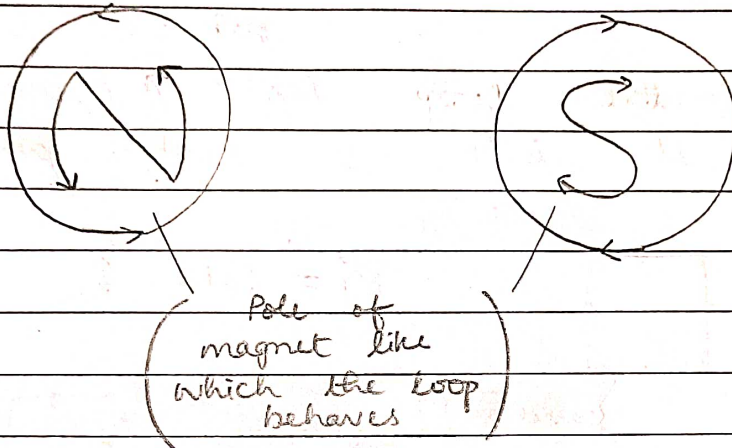 N S
Pole of
magnet like
which the loop
behaves